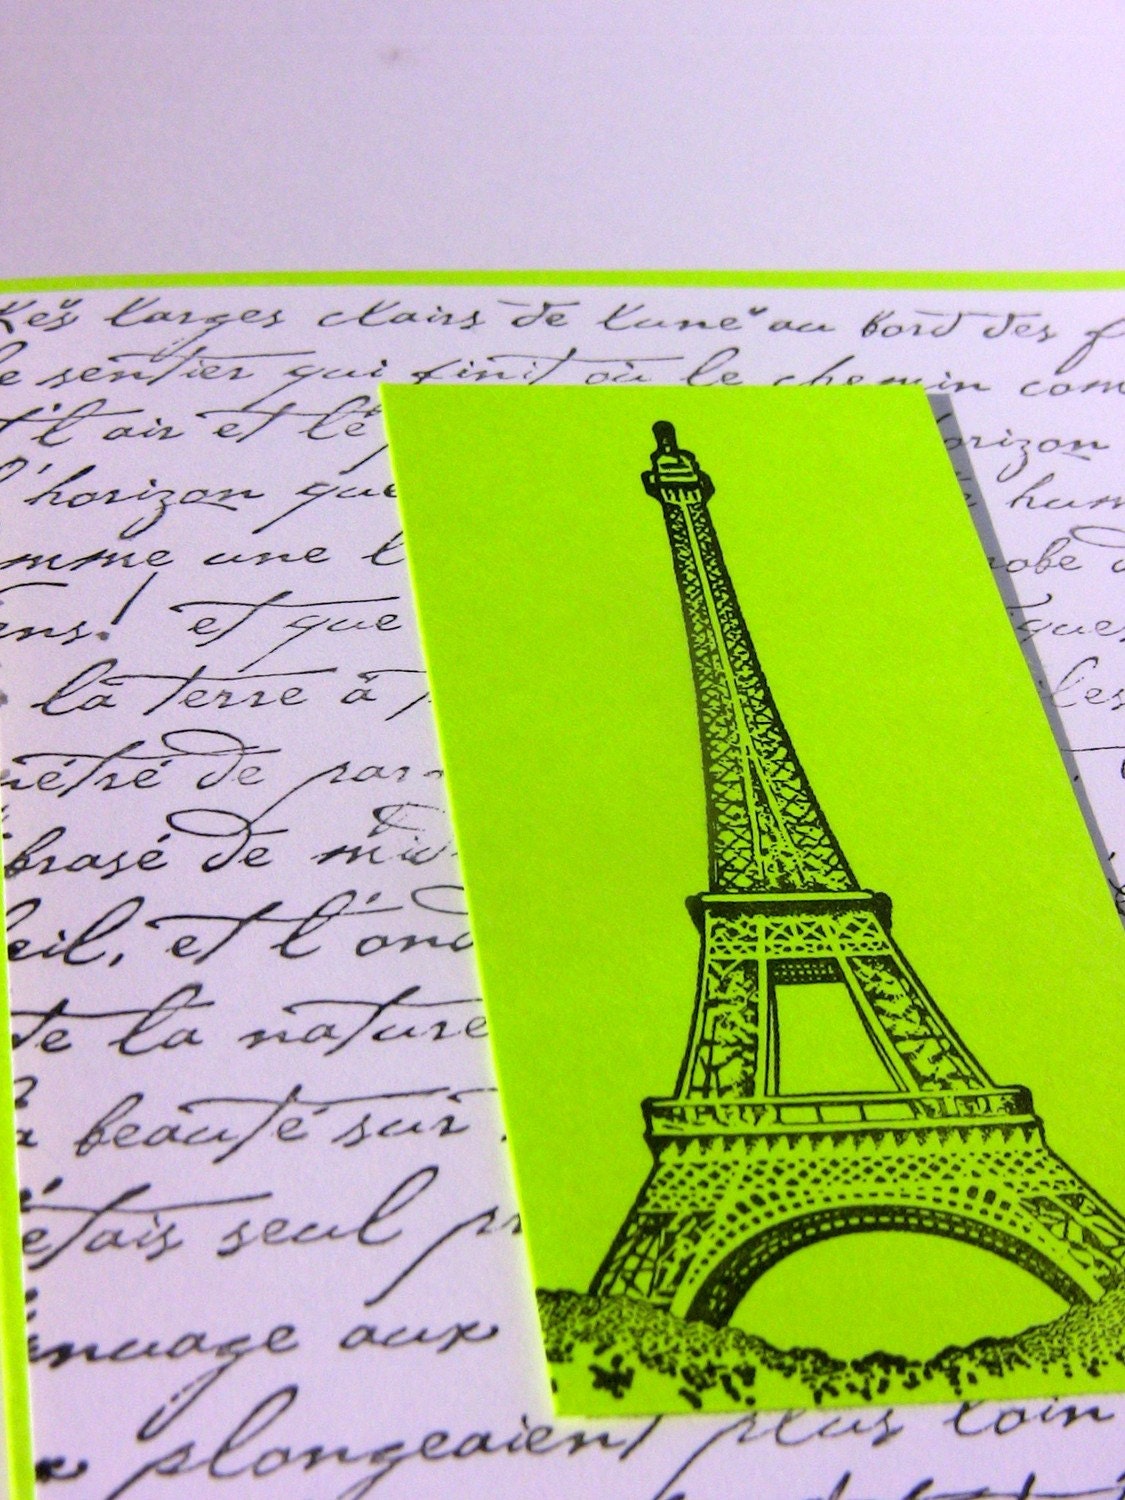 Les larges clairs de lune au bord des
sentier qui finit où le chemin com
t l'air et l'é horizon
l'horizon que hum
omme une l robe d
ens! et que ques
la terre à les
étré de par
brasé de
leil, et l'ond
te la nature
beauté sur
étais seul pr
nuage aux
plongeaient plus loin